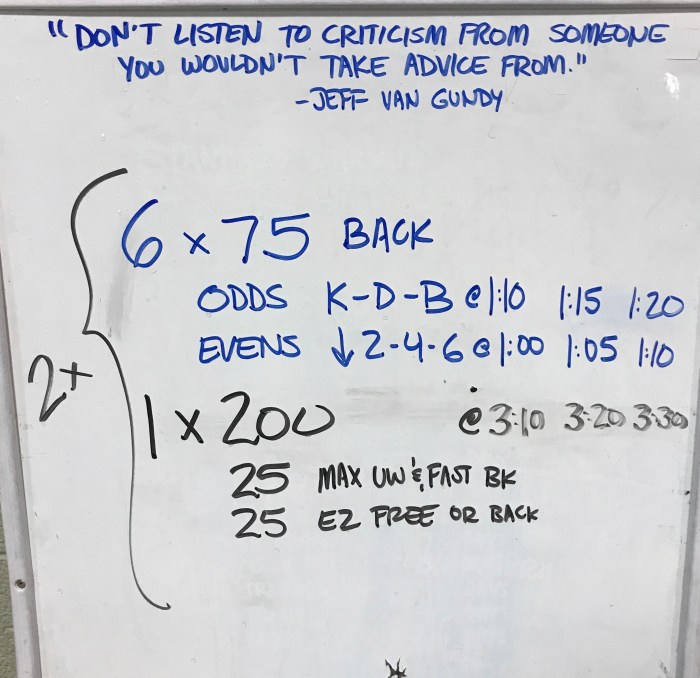 "DON'T LISTEN TO CRITICISM FROM SOMEONE
YOU WOULDN'T TAKE ADVICE FROM."
-JEFF VAN GUNDY
2x
6 x 75 BACK
ODDS K-D-B @ 1:10 1:15 1:20
EVENS ↓ 2-4-6 @ 1:00 1:05 1:10
1 x 200 @ 3:10 3:20 3:30
25 MAX UW & FAST BK
25 EZ FREE OR BACK